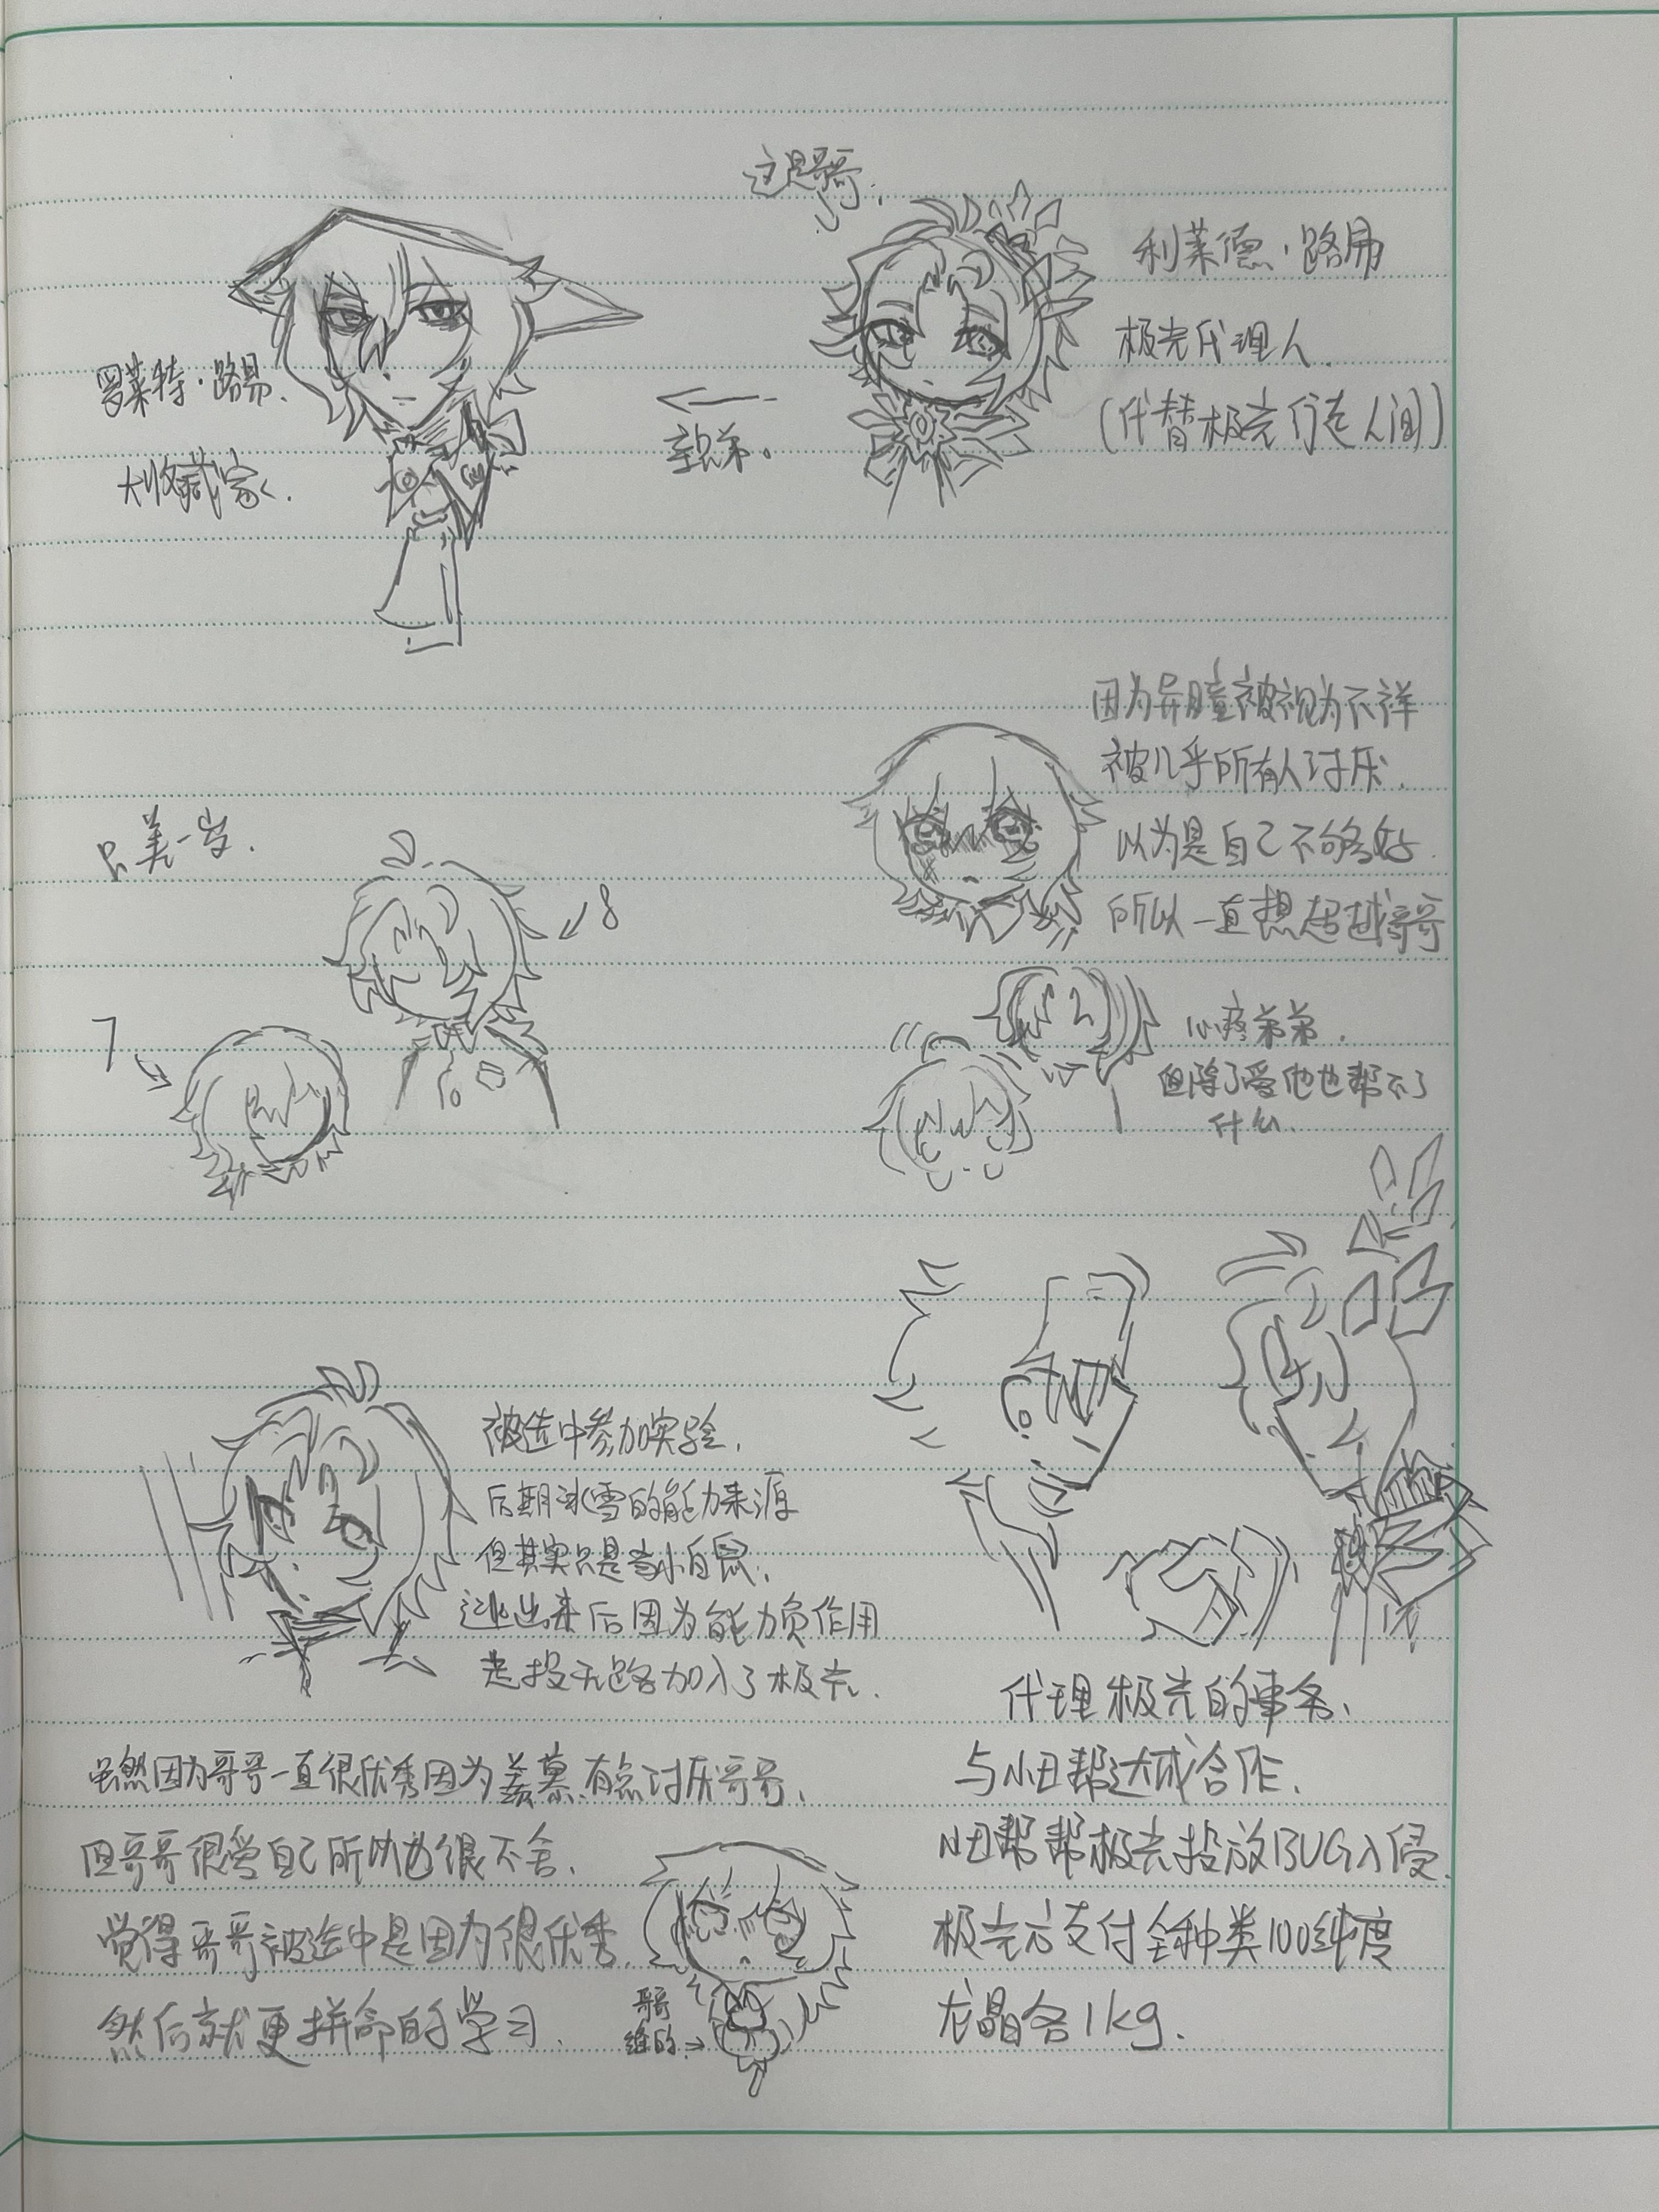 这是哥哥.
利莱德·路易
极光代理人
(代替极光行走人间)
罗莱特·路易.
大收藏家.
亲兄弟。
因为异瞳被视为不祥
被几乎所有人讨厌.
以为是自己不够好.
所以一直想超越哥哥
只差一岁.
8
7
心疼弟弟.
但除了爱他也帮不了
什么.
被选中参加实验,
后期冰雪的能力来源
但其实只是当小白鼠,
逃出来后因为能力负作用
走投无路加入了极光.
虽然因为哥哥一直很优秀因为羡慕有点讨厌哥哥,
但哥哥很爱自己所以也很不舍.
觉得哥哥被选中是因为很优秀.
然后就更拼命的学习.
哥哥
→
代理极光的事务、
与小丑帮达成合作.
小丑帮帮极光投放BUG入侵.
极光方支付全种类100纯度
龙晶各1kg.